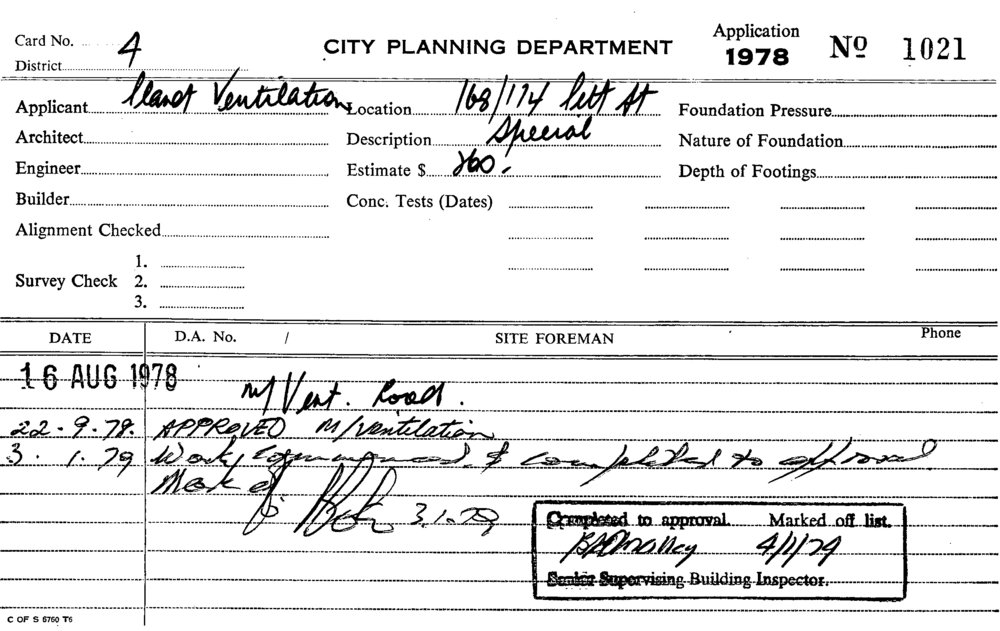 Card No. 4
District
CITY PLANNING DEPARTMENT
Application
1978
Nº 1021
Applicant Planet Ventilation
Location 168/174 Pitt St
Foundation Pressure
Architect
Description Special
Nature of Foundation
Engineer
Estimate $ 260.
Depth of Footings
Builder
Conc. Tests (Dates)
Alignment Checked
Survey Check
1.
2.
3.
DATE D.A. No. / SITE FOREMAN Phone
16 AUG 1978
m/Vent.
22.9.78. APPROVED M/Ventilation
3.1.79 Work commenced & completed to approval
3.1.79
Completed to approval. Marked off list.
4/1/79
Senior Supervising Building Inspector.
C OF S 6760 T6